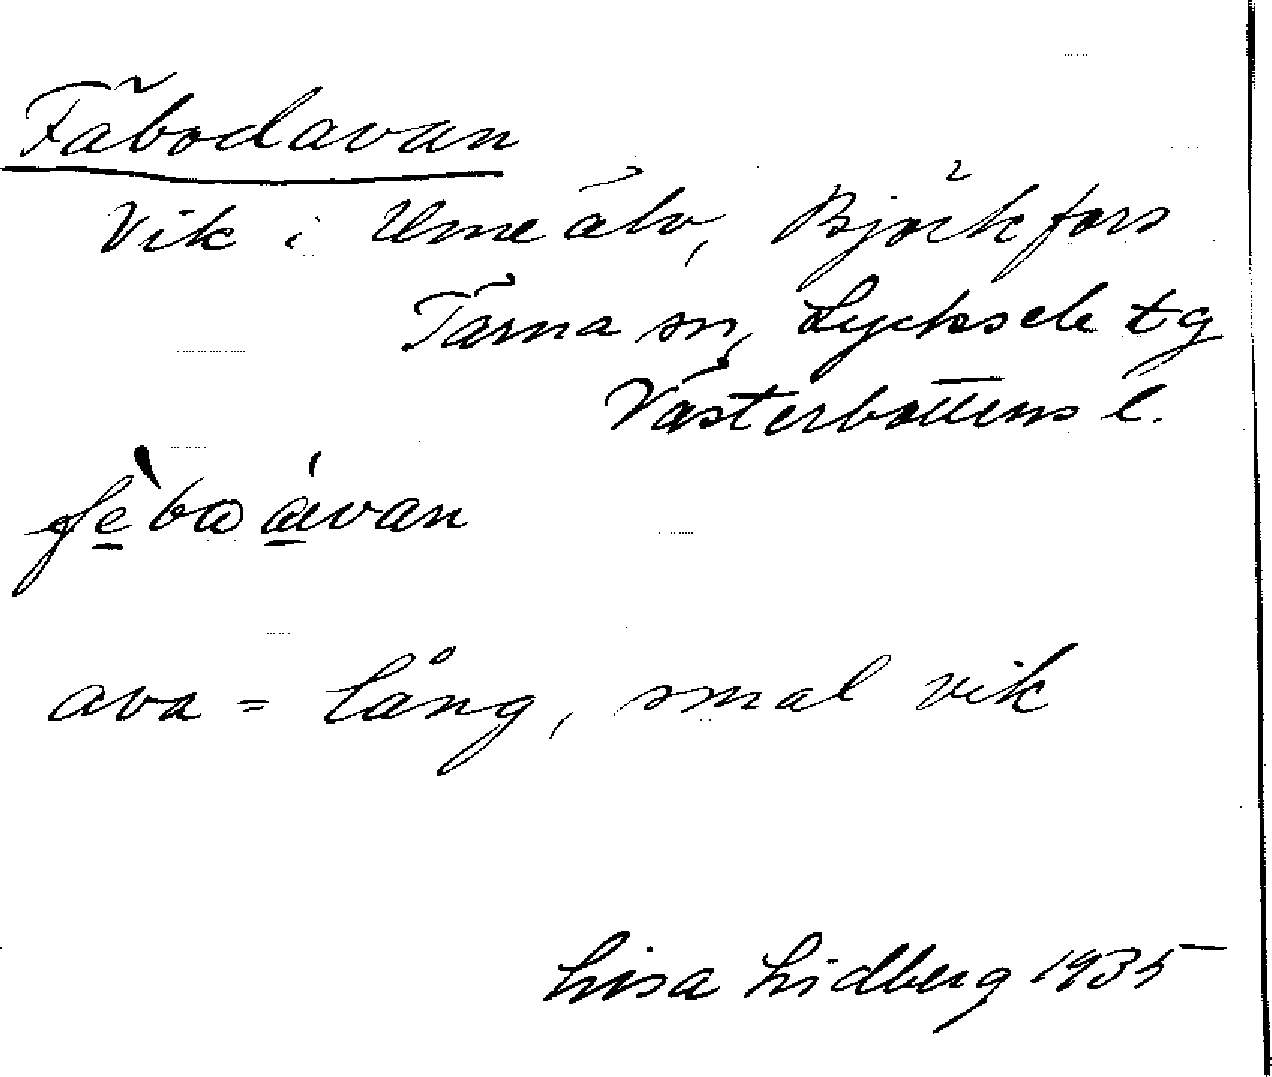 Fäbodavan
Vik i Ume älv, Björkfors
Tärna sn, Lycksele tg
Västerbottens l.
ava = lång, smal vik
Lisa Lidberg 1935